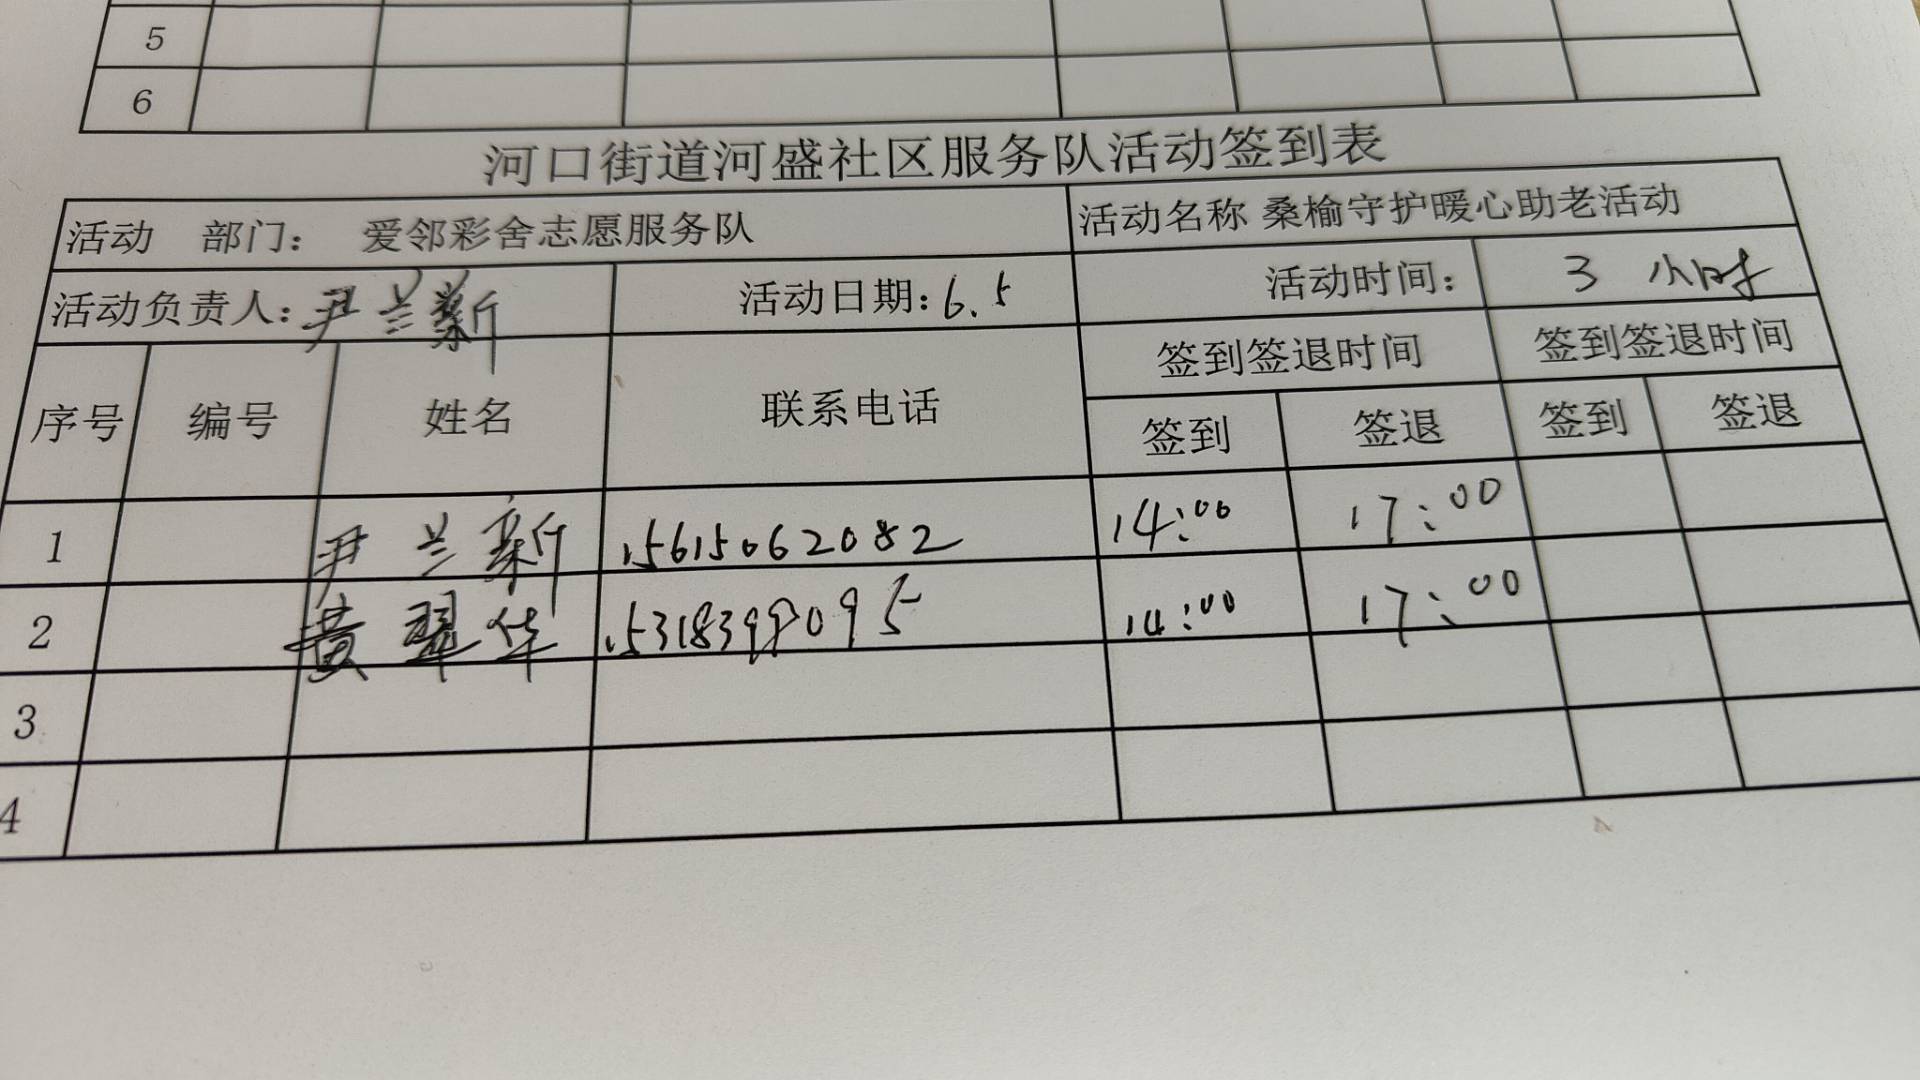 5
6
河口街道河盛社区服务队活动签到表
活动 部门： 爱邻彩舍志愿服务队 活动名称 桑榆守护暖心助老活动
活动负责人：尹兰新 活动日期：6.5 活动时间： 3 小时
序号 编号 姓名 联系电话 签到签退时间 签到签退时间
签到 签退 签到 签退
1 尹兰新 15615062082 14:00 17:00
2 黄翠华 15318399095 14:00 17:00
3
4